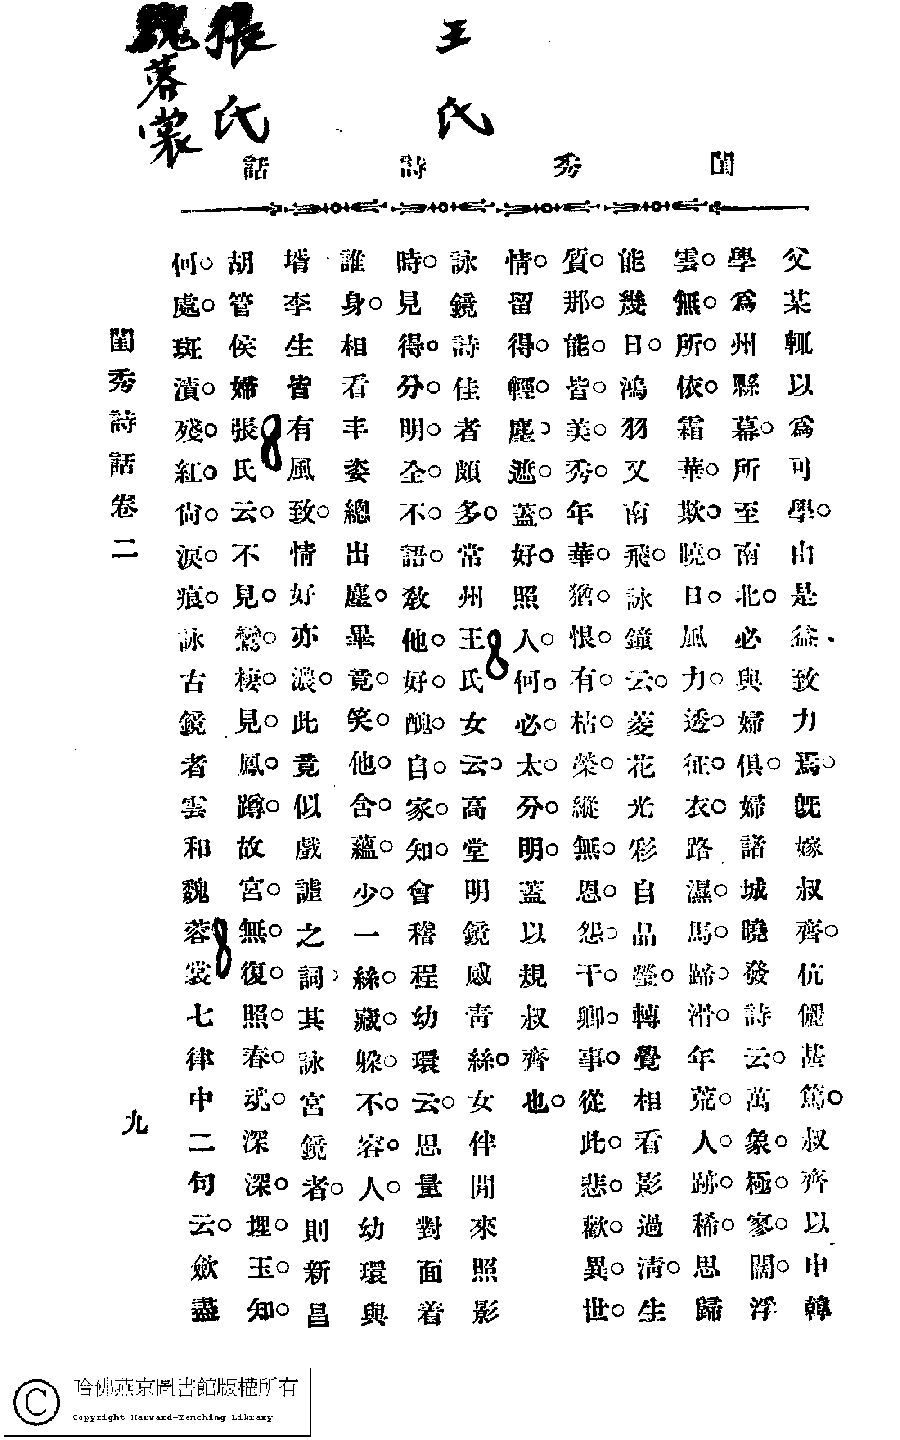 王氏
張氏
魏蓉裳
閨秀詩話
父某輒以爲可學。由是益致力焉。旣嫁叔齊。伉儷甚篤。叔齊以申韓
學爲州縣幕。所至南北。必與婦俱。婦諸城曉發詩云。萬象極寥闊。浮
雲無所依。霜華欺曉日。風力透征衣。路濕馬蹄滑。年荒人跡稀。思歸
能幾日。鴻羽又南飛。詠鏡云。菱花光彩自品瑩。轉覺相看影過淸。生
質那能皆美秀。年華猶恨有枯榮。縱無恩怨干卿事。從此悲歡異世
情。留得輕塵遮蓋好。照人何必太分明。蓋以規叔齊也。
詠鏡詩佳者頗多。常州王氏女云。高堂明鏡感靑絲。女伴閒來照影
時。見得分明全不語。敎他好醜自家知。會稽程幼環云。思量對面着
誰身。相看丰姿總出塵。畢竟笑他含蘊少。一絲藏躱不容人。幼環與
壻李生皆有風致。情好亦濃。此竟似戲謔之詞。其詠宮鏡者。則新昌
胡管侯婦張氏云。不見鸞棲見鳳蹲。故宮無復照春魂。深深埋玉知
何處。斑漬殘紅尙淚痕。詠古鏡者雲和魏蓉裳七律中二句云。斂盡
閨秀詩話卷二
九
哈佛燕京圖書館版權所有
Copyright Harvard-Yenching Library